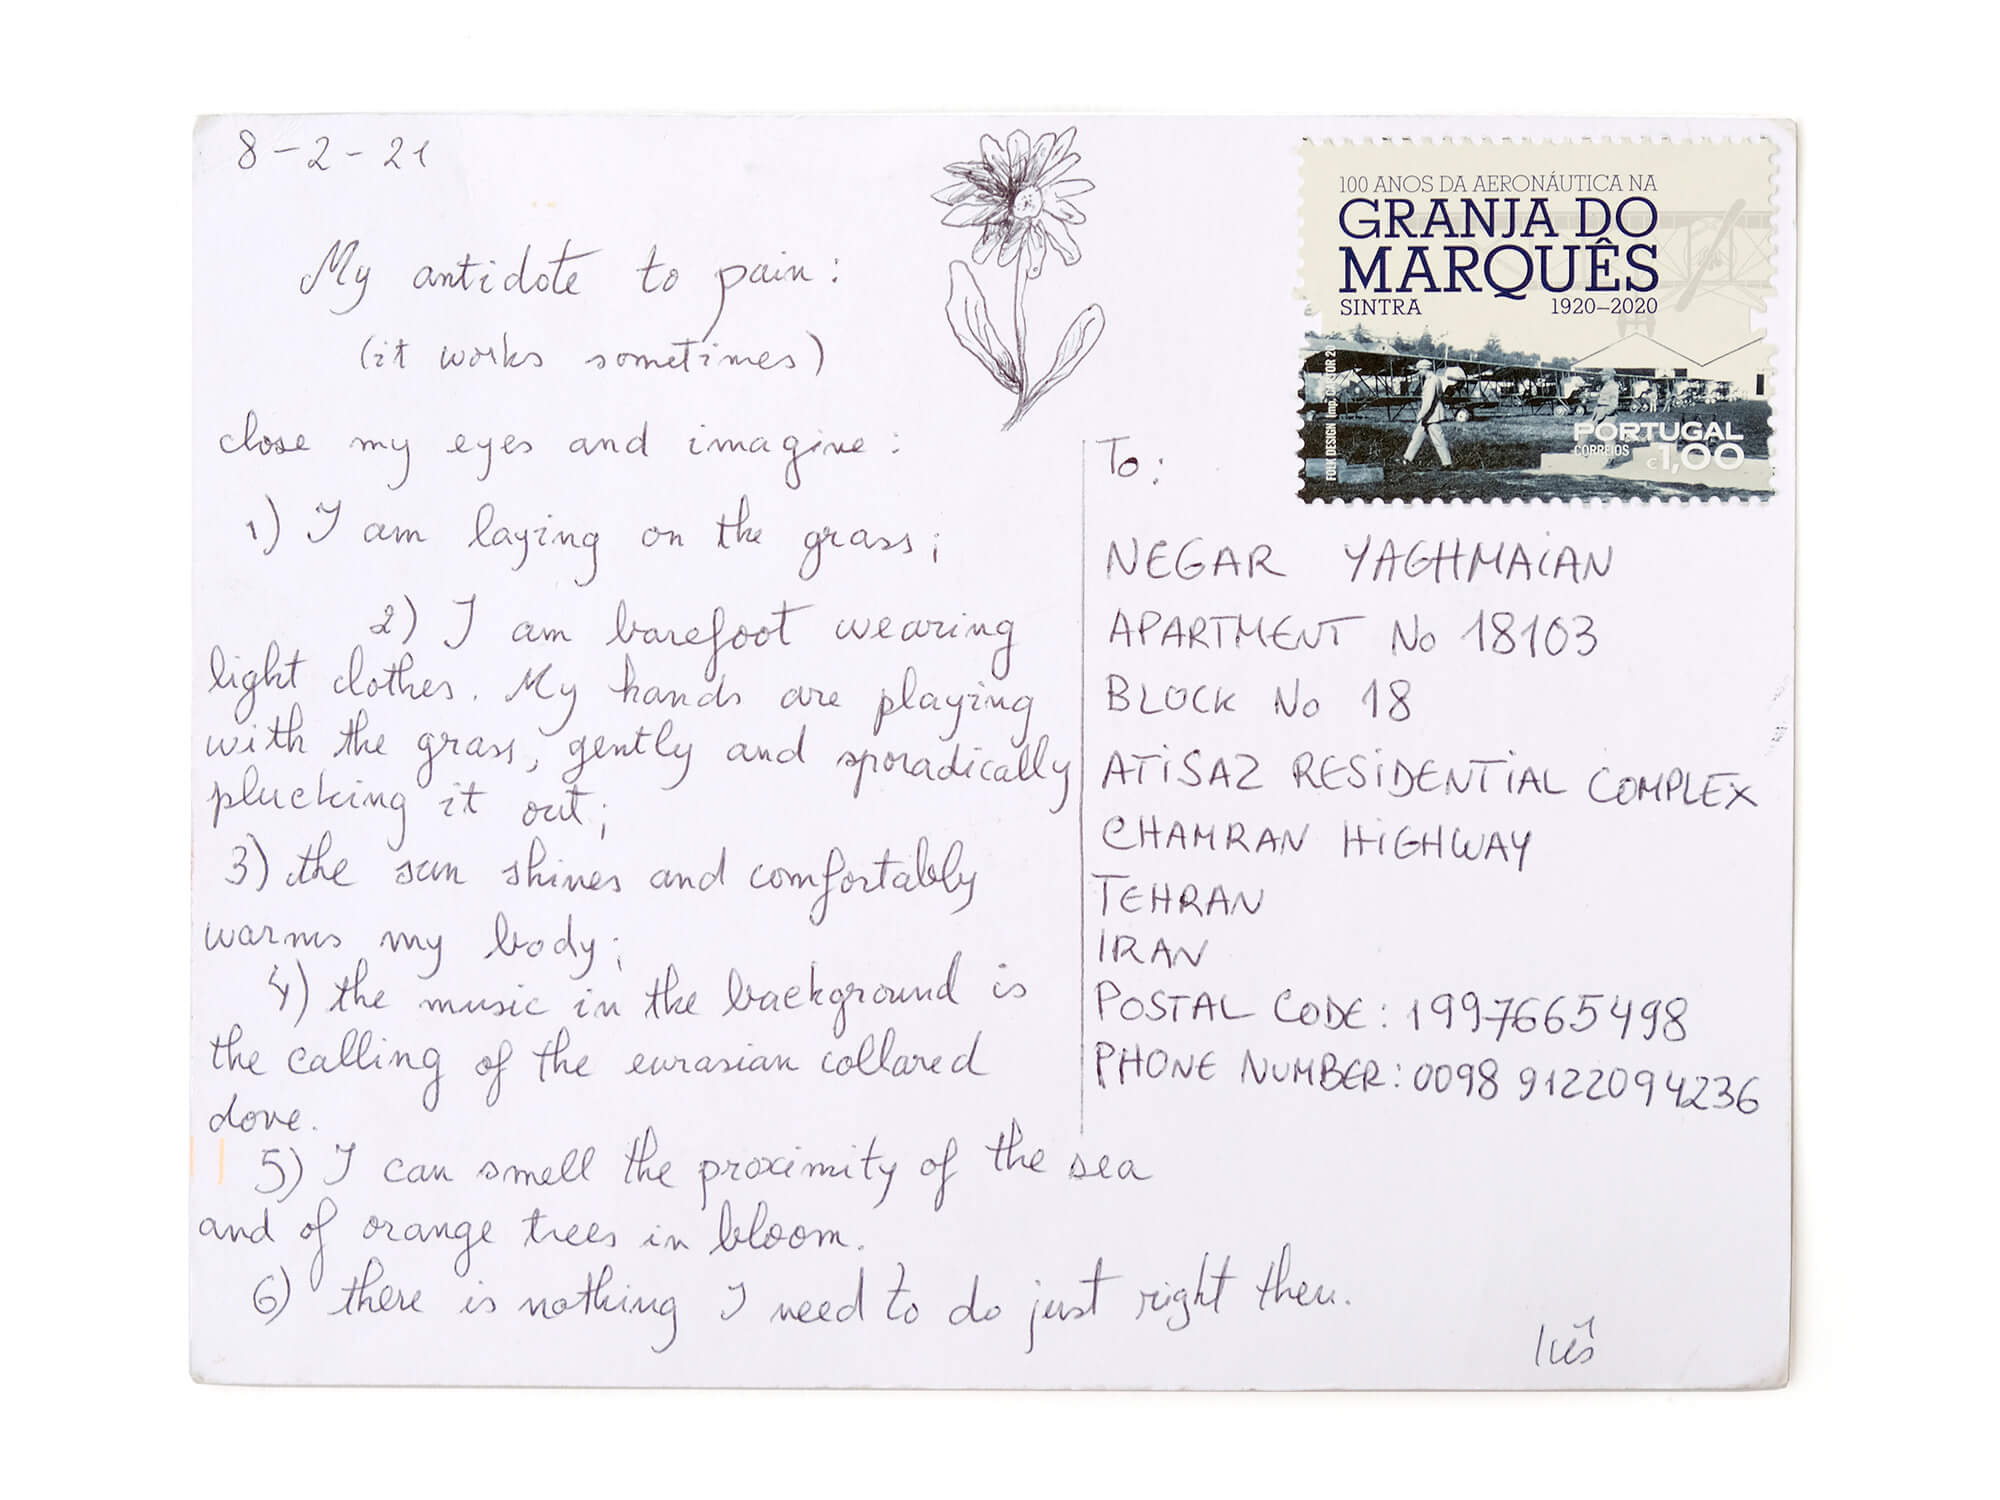 8-2-21
My antidote to pain:
(it works sometimes)
close my eyes and imagine:
1) I am laying on the grass;
2) I am barefoot wearing
light clothes. My hands are playing
with the grass, gently and sporadically
plucking it out;
3) the sun shines and comfortably
warms my body;
4) the music in the background is
the calling of the eurasian collared
dove.
5) I can smell the proximity of the sea
and of orange trees in bloom.
6) there is nothing I need to do just right then.
Inês
100 ANOS DA AERONÁUTICA NA
GRANJA DO
MARQUÊS
SINTRA 1920–2020
FOLK DESIGN Imp. CARTOR 20
PORTUGAL
CORREIOS €1,00
To:
NEGAR YAGHMAIAN
APARTMENT No 18103
BLOCK No 18
ATISAZ RESIDENTIAL COMPLEX
CHAMRAN HIGHWAY
TEHRAN
IRAN
POSTAL CODE: 1997665498
PHONE NUMBER: 0098 9122094236